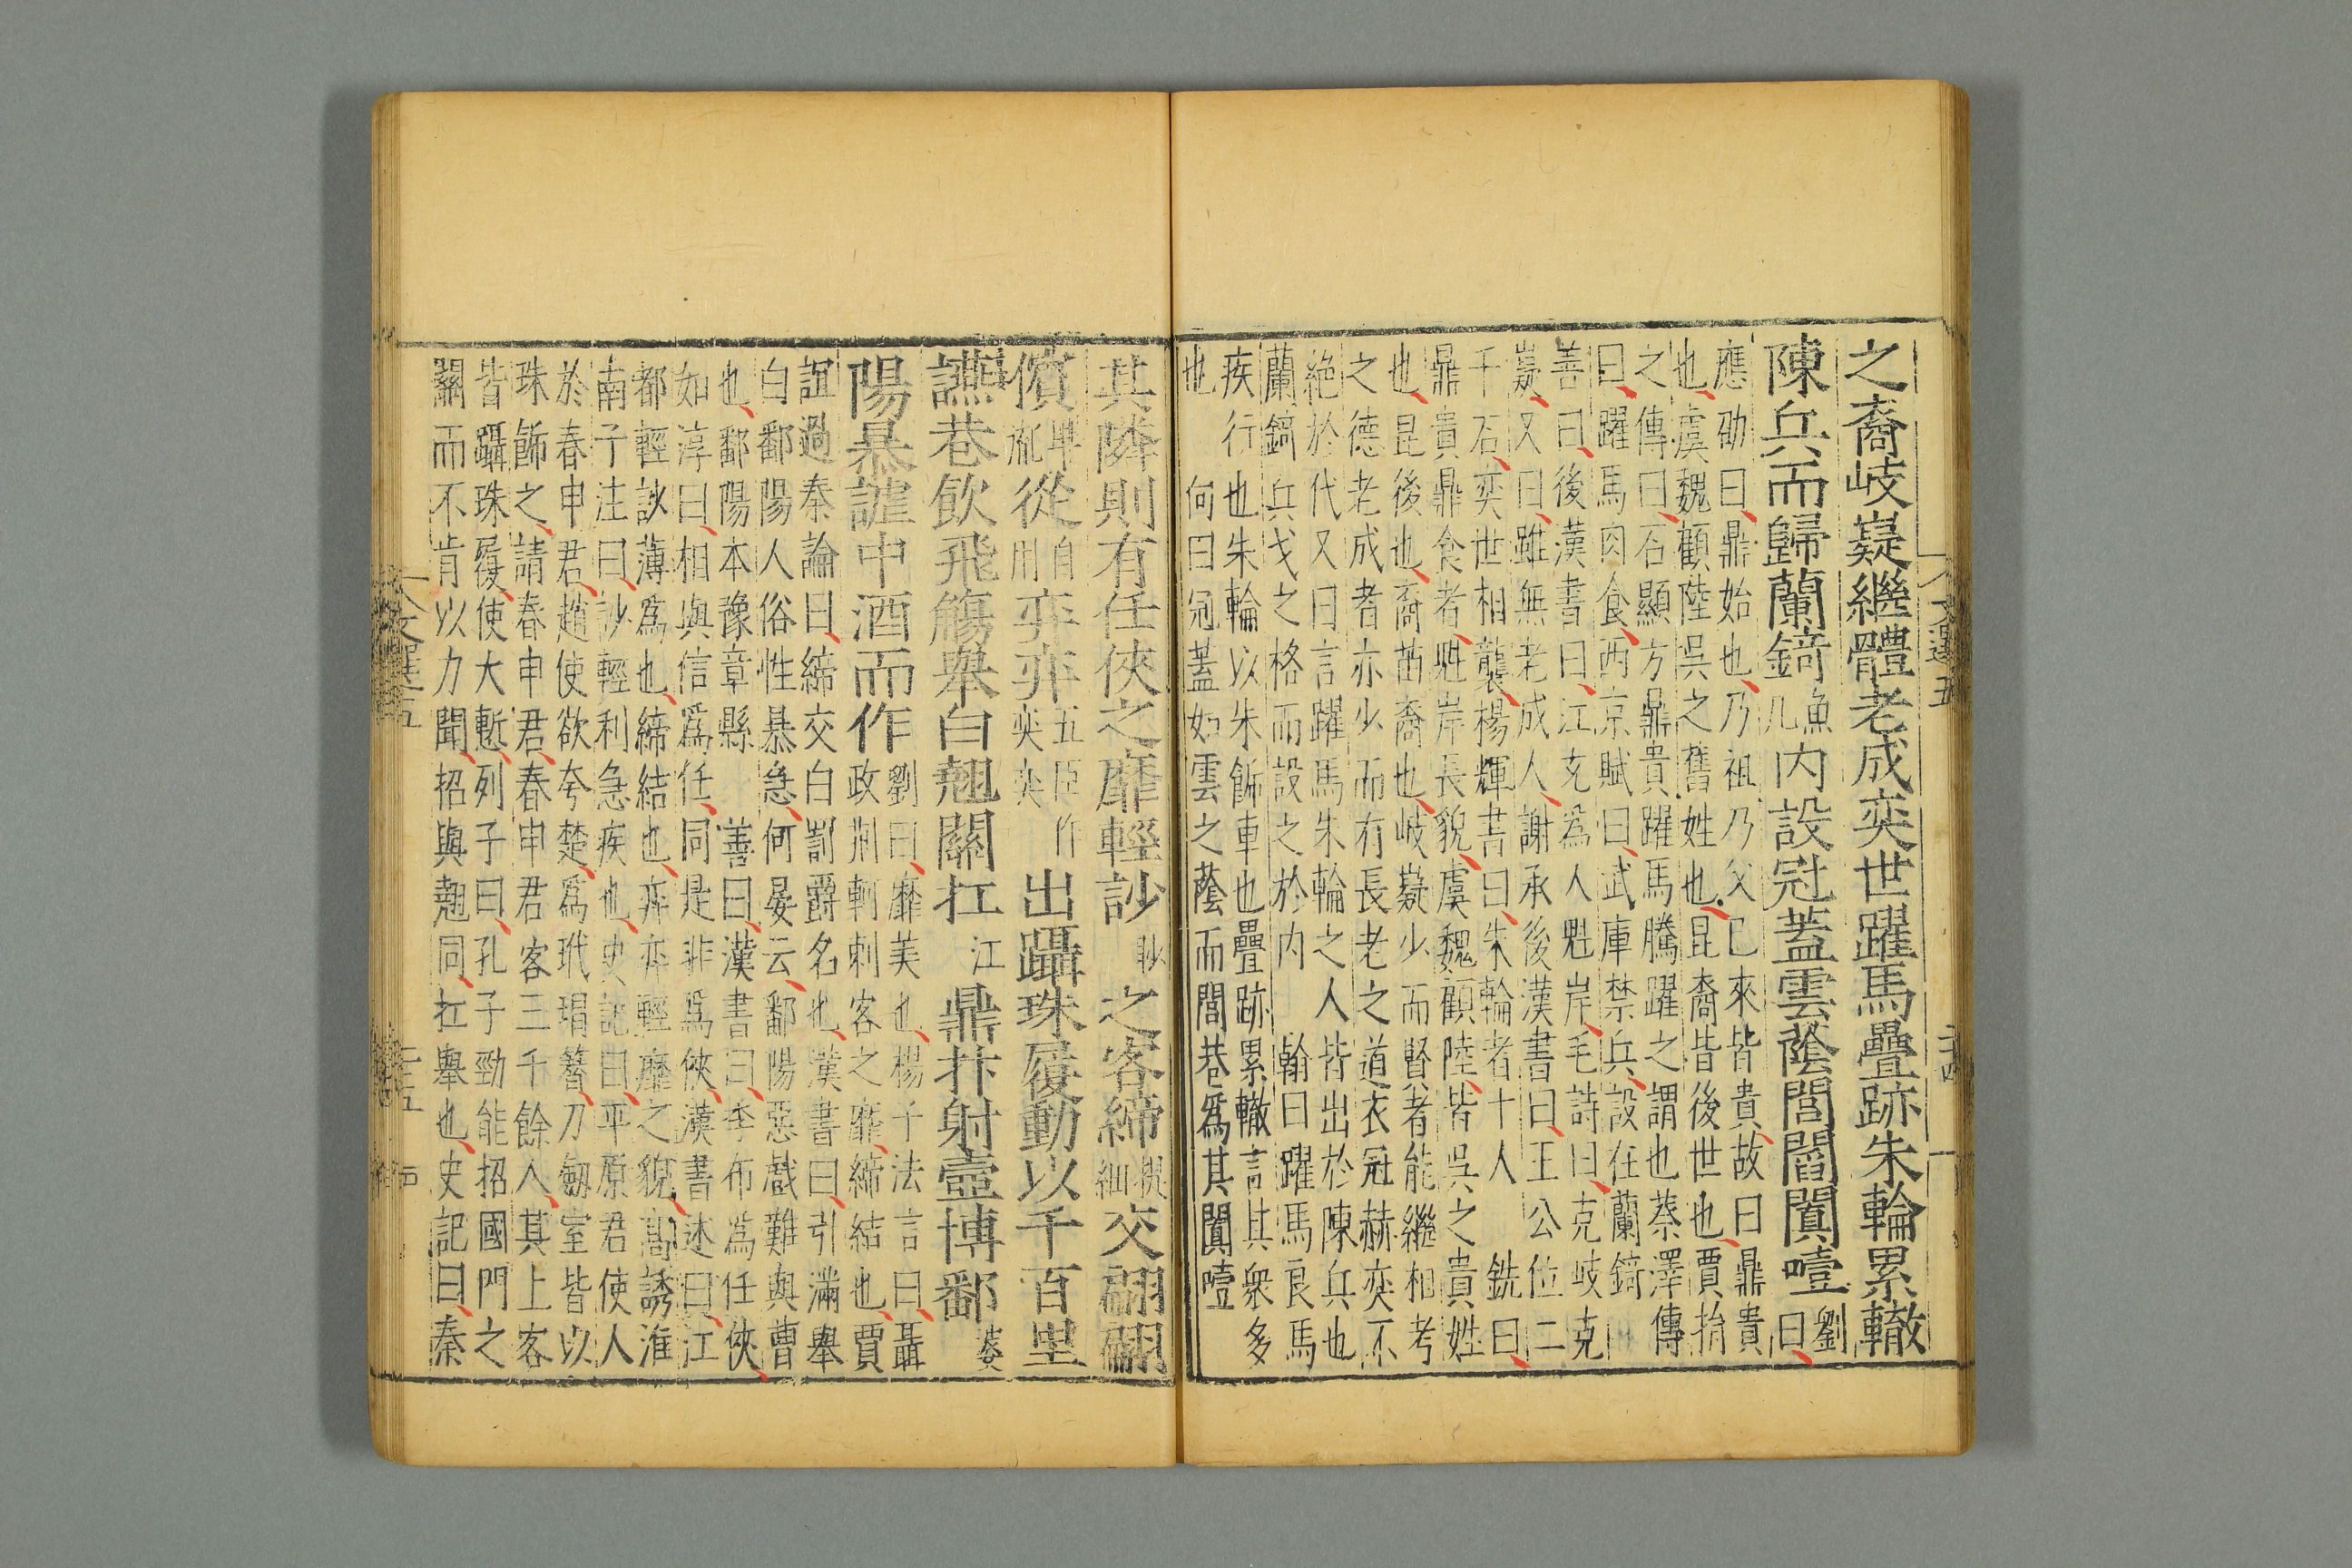 之裔岐嶷繼體老成奕世躍馬疊跡朱輪累轍
陳兵而歸蘭錡魚几内設冠蓋雲蔭閭閻闐噎劉曰
應劭曰鼎始也乃祖乃父已來皆貴故曰鼎貴
也虞魏顧陸吳之舊姓也昆裔皆後世也賈捐
之傳曰石顯方鼎貴躍馬騰躍之謂也蔡澤傳
曰躍馬肉食西京賦曰武庫禁兵設在蘭錡
善曰後漢書曰江充為人魁岸毛詩曰克岐克
嶷又曰雖無老成人謝承後漢書曰王公位二
千石奕世相襲楊輝書曰朱輪者十人銑曰
鼎貴鼎食者魁岸長貌虞魏顧陸皆吳之貴姓
也昆後也裔苗裔也岐嶷少而賢者能繼相考
之德老成者亦少而有長老之道衣冠赫奕不
絶於代又曰言躍馬朱輪之人皆出於陳兵也
蘭錡兵戈之格而設之於内翰曰躍馬良馬
疾行也朱輪以朱飾車也疊跡累轍言其衆多
也何曰冠蓋如雲之蔭而閭巷爲其闐噎
文選五
二十四
其隣則有任俠之靡輕訬眇之客締禊細交翩翩
儐卑胤從自用弈弈五臣作奕奕出躡珠履動以千百里
讌巷飲飛觴舉白翹關扛江鼎抃射壼博鄱婆
陽暴謔中酒而作劉曰靡美也楊子法言曰聶
政荆軻刺客之靡締結也賈
誼過秦論曰締交白罰爵名也漢書曰引滿舉
白鄱陽人俗性暴急何晏云鄱陽惡戲難與曹
也鄱陽本豫章縣善曰漢書曰季布為任俠
如淳曰相與信爲任同是非爲俠漢書述曰江
都輕訬薄爲也締結也弈弈輕靡之貌高誘淮
南子注曰訬輕利急疾也史記曰平原君使人
於春申君趙使欲夸楚爲玳瑁簪刀劔室皆以
珠飾之請春申君春申君客三千餘人其上客
皆躡珠履使大慙列子曰孔子勁能招國門之
關而不肯以力聞招與翹同扛舉也史記曰秦
文選五
二十五